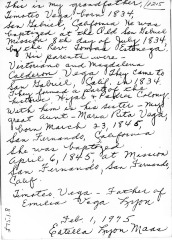 This is my grandfather,
Timoteo Vega, born 1834
San Gabriel, California. He was
baptized at the Old San Gabriel
Mission 8th day of July, 1834
by the Rev. Tomas
His parents were
Victoriano and Magdalena
Calderon Vega. They came to
San Gabriel, Calif. in 1834.
They formed a part of the
historic Hijar & Padres Colony
With him is his sister - my
great aunt - Maria Rita Vega
born March 23, 1845
San Fernando, California
She was baptized
April 6, 1845, at Mission
San Fernando, San Fernando,
Calif.
Timoteo Vega - Father of
Emilia Vega Lyon
Feb 1, 1975
Estella Lyon Maas